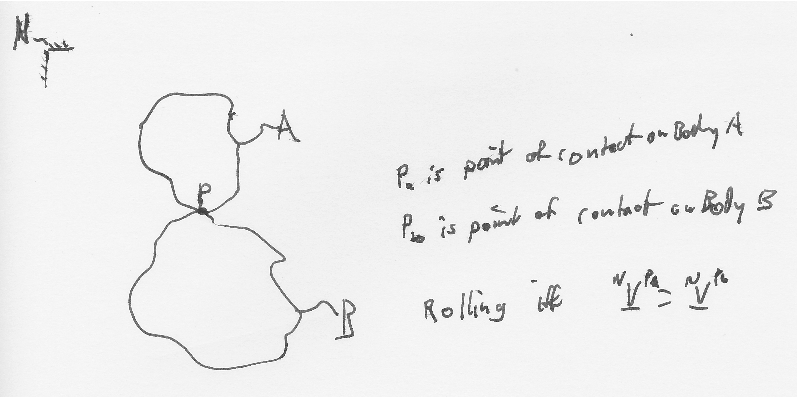 N
A
P
Pa is point of contact on Body A
Pb is point of contact on Body B
B
Rolling iff ᴺVᴾᵃ = ᴺVᴾᵇ